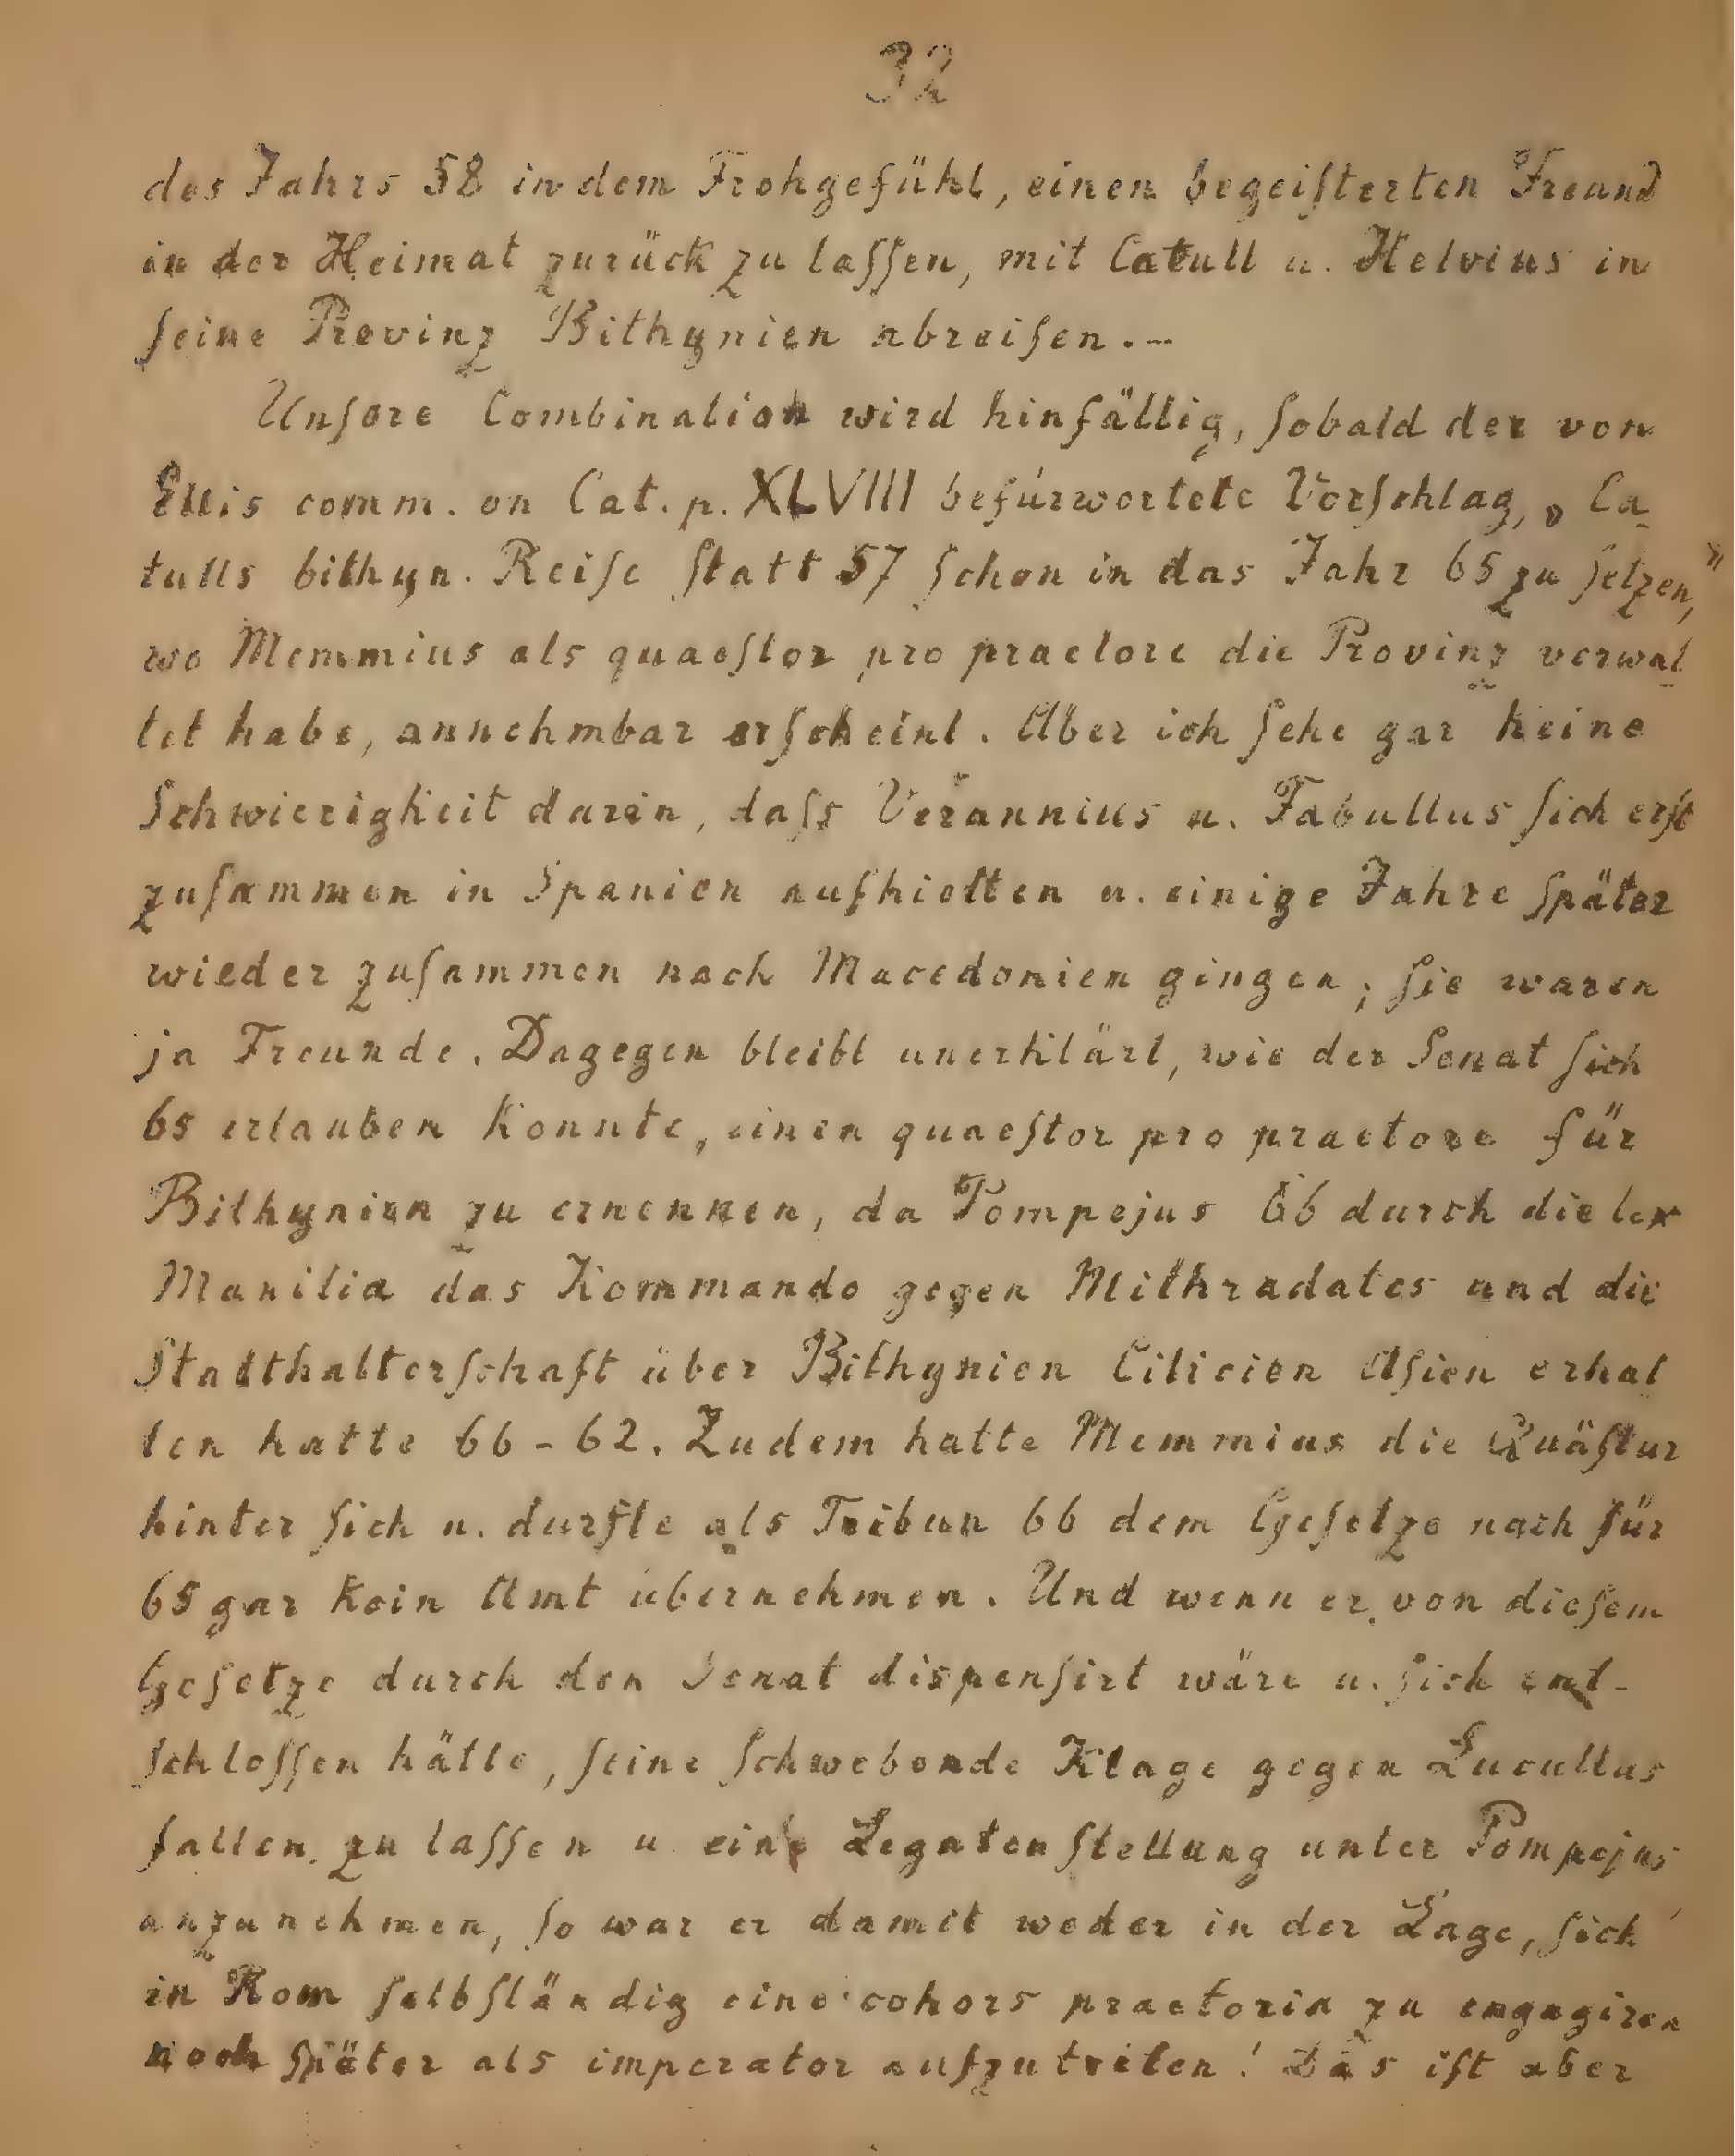 32
des Jahrs 58 in dem Frohgefühl, einen begeiſterten Freund
in der Heimat zurück zu laſſen, mit Catull u. Helvius in
ſeine Provinz Bithynien abreiſen. --
Unſere Combination wird hinfällig, ſobald der von
Ellis comm. on Cat. p. XLVIII befürwortete Vorſchlag, „Ca-
tulls bithyn. Reiſe ſtatt 57 ſchon in das Jahr 65 zu ſetzen,"
wo Memmius als quaeſtor pro praetore die Provinz verwal-
tet habe, annehmbar erſcheint. Aber ich ſehe gar keine
Schwierigkeit darin, daſs Verannius u. Fabullus ſich erſt
zuſammen in Spanien aufhielten u. einige Jahre ſpäter
wieder zuſammen nach Macedonien gingen; ſie waren
ja Freunde. Dagegen bleibt unerklärt, wie der Senat ſich
65 erlauben konnte, einen quaeſtor pro praetore für
Bithynien zu ernennen, da Pompejus 66 durch die lex
Manilia das Kommando gegen Mithradates und die
Statthalterſchaft über Bithynien Cilicien Aſien erhal-
ten hatte 66 - 62. Zudem hatte Memmius die Quäſtur
hinter ſich u. durfte als Tribun 66 dem Geſetze nach für
65 gar kein Amt übernehmen. Und wenn er von dieſem
Geſetze durch den Senat dispenſirt wäre u. ſich ent-
ſchloſſen hätte, ſeine ſchwebende Klage gegen Lucullus
fallen zu laſſen u. eine Legatenſtellung unter Pompejus
anzunehmen, ſo war er damit weder in der Lage, ſich
in Rom ſelbſtändig eine cohors praetoria zu engagiren
noch ſpäter als imperator aufzutreten! Das iſt aber